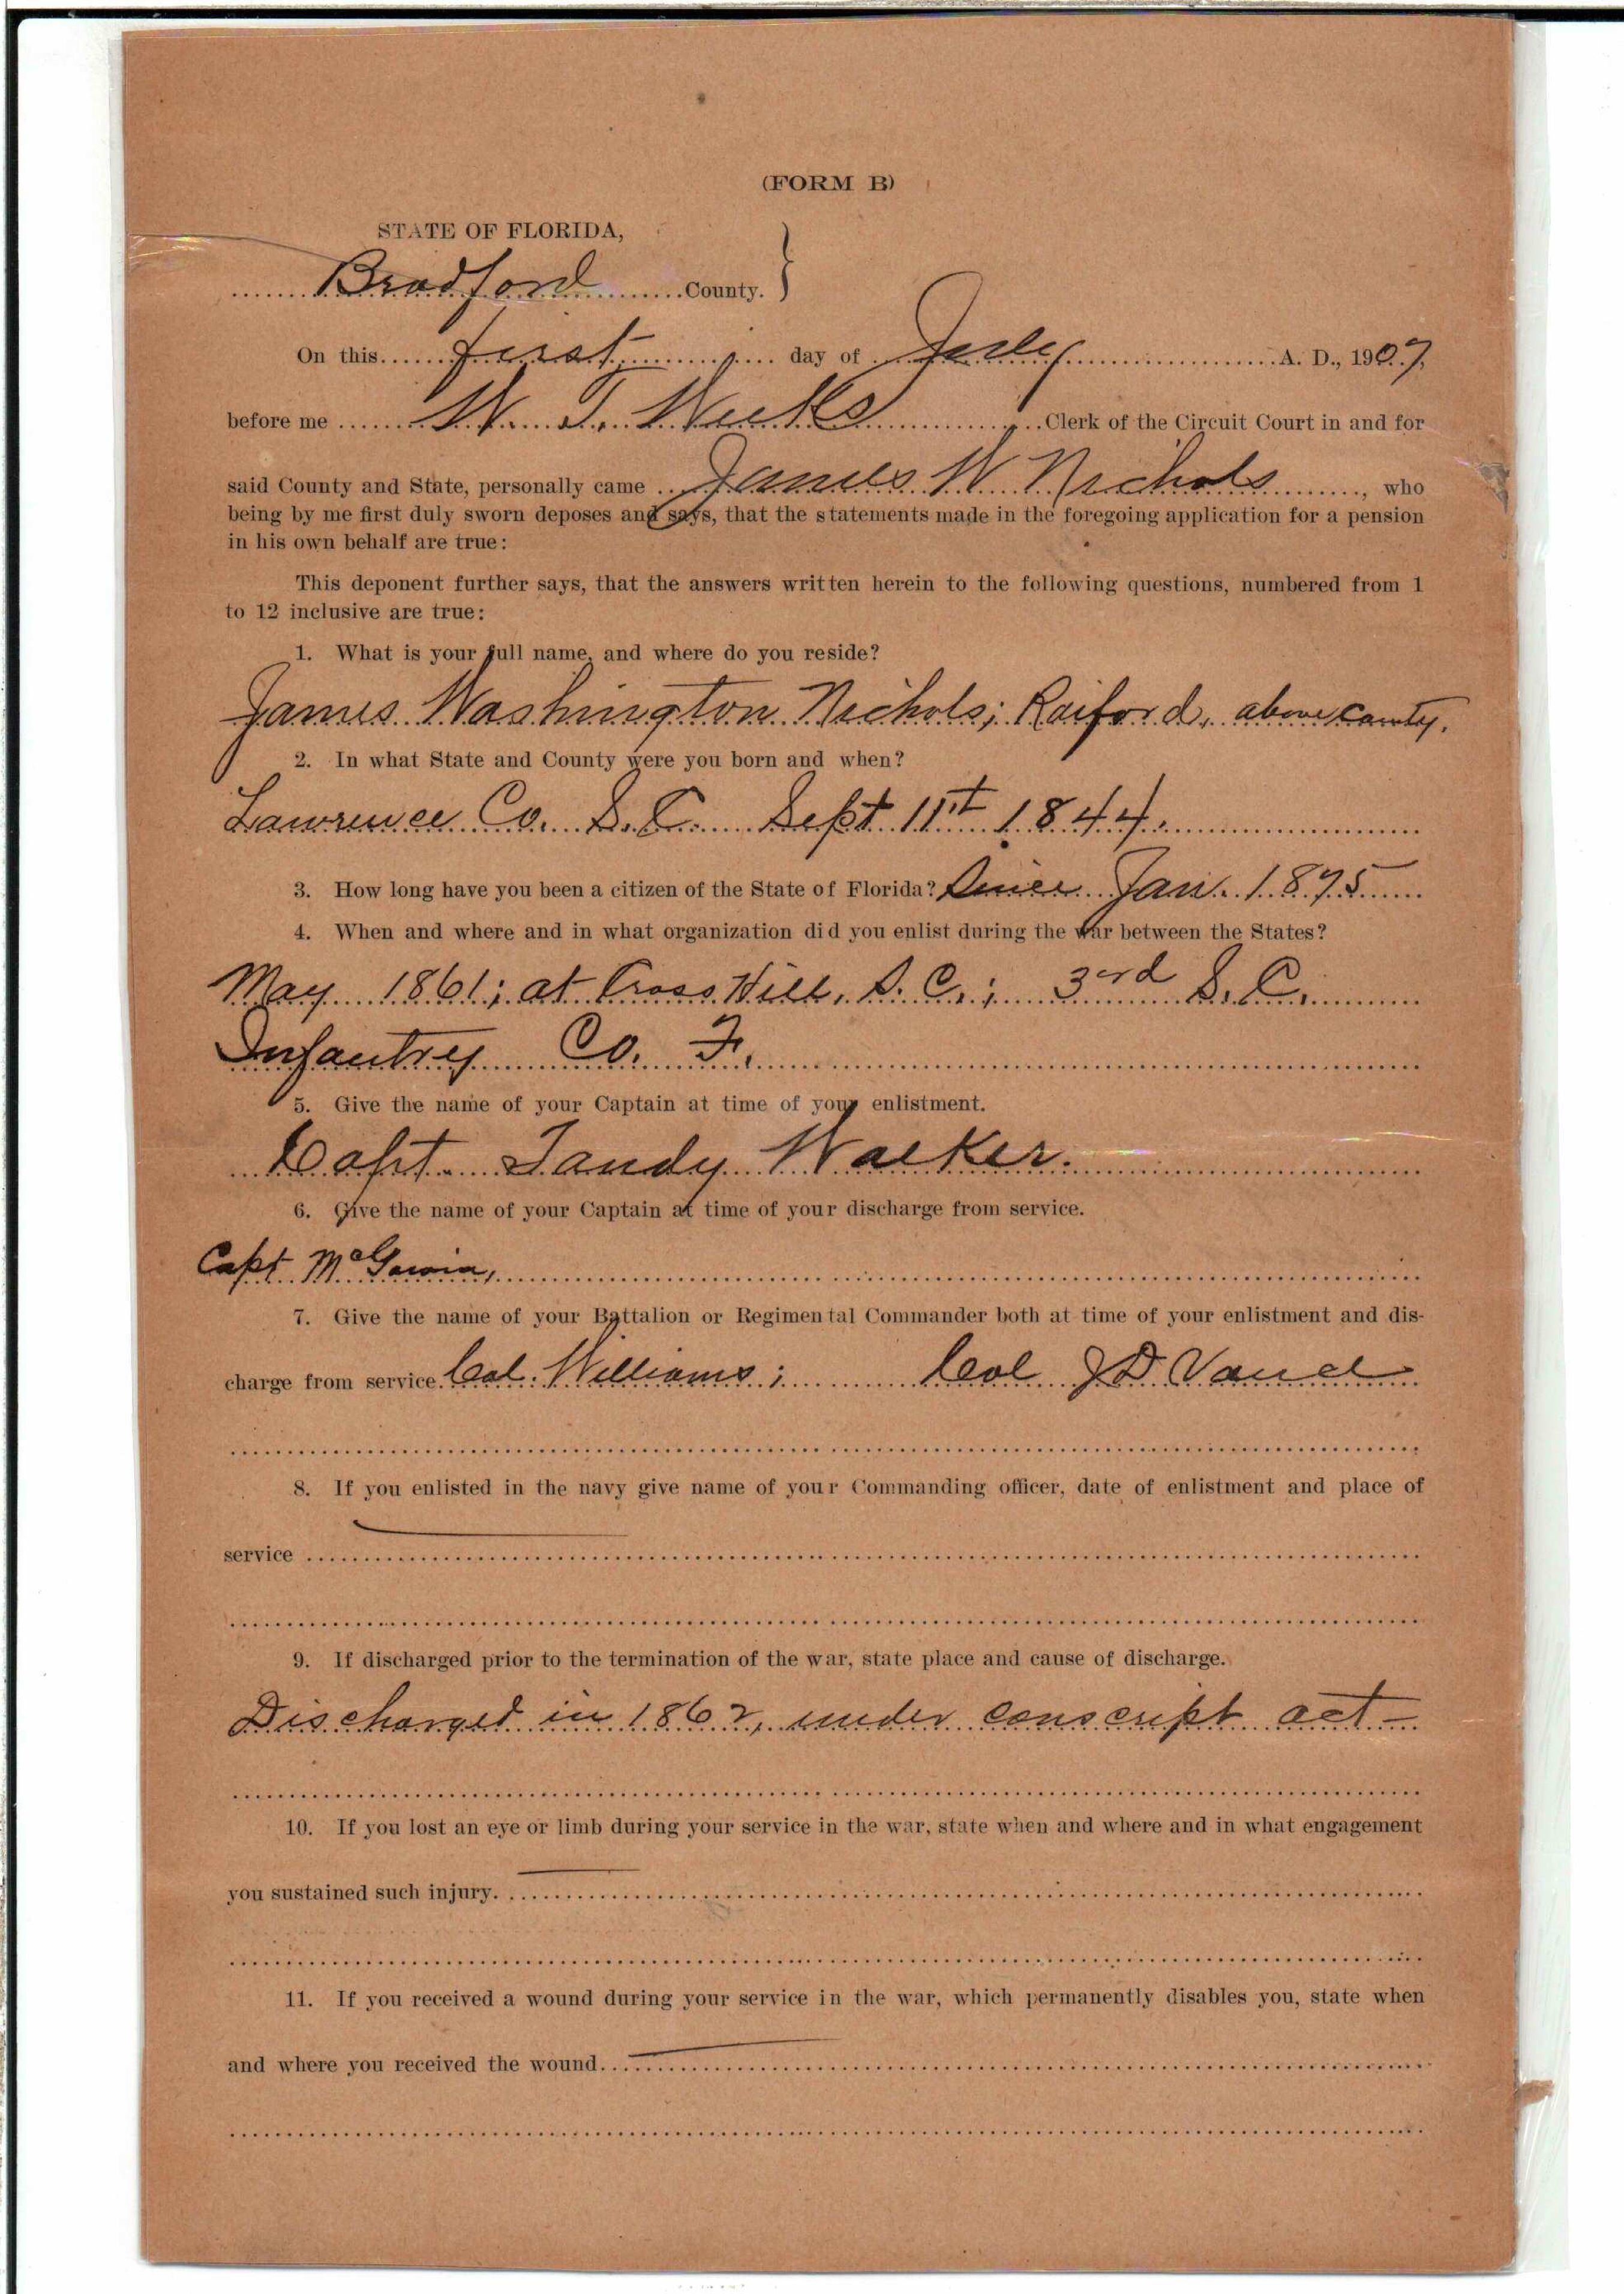 (FORM B)
STATE OF FLORIDA,
Bradford County.
On this first day of July A. D., 1907,
before me W. T. Weeks Clerk of the Circuit Court in and for
said County and State, personally came James W Nichols, who
being by me first duly sworn deposes and says, that the statements made in the foregoing application for a pension
in his own behalf are true:
This deponent further says, that the answers written herein to the following questions, numbered from 1
to 12 inclusive are true:
1. What is your full name, and where do you reside?
James Washington Nichols; Raiford, above county.
2. In what State and County were you born and when?
Lawrence Co. S.C. Sept 11th 1844.
3. How long have you been a citizen of the State of Florida? Since Jan. 1875
4. When and where and in what organization did you enlist during the war between the States?
May 1861; at Cross Hill, S. C.; 3rd S. C.
Infantry Co. F.
5. Give the name of your Captain at time of your enlistment.
Capt. Tandy Walker.
6. Give the name of your Captain at time of your discharge from service.
Capt. McGowin,
7. Give the name of your Battalion or Regimental Commander both at time of your enlistment and dis-
charge from service. Col. Williams; Col J D
8. If you enlisted in the navy give name of your Commanding officer, date of enlistment and place of
service
9. If discharged prior to the termination of the war, state place and cause of discharge.
Discharged in 1862, under conscript act —
10. If you lost an eye or limb during your service in the war, state when and where and in what engagement
you sustained such injury.
11. If you received a wound during your service in the war, which permanently disables you, state when
and where you received the wound.